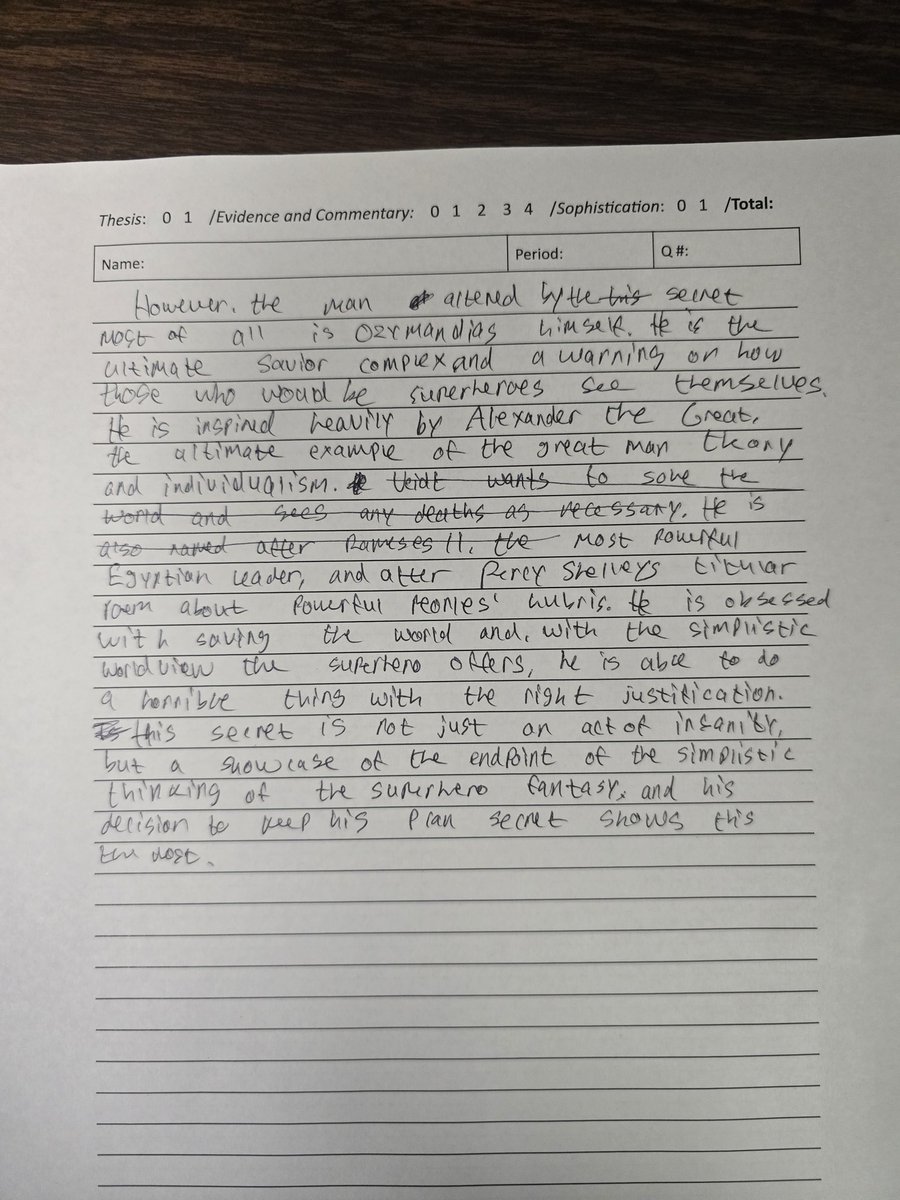 Thesis: 0 1 /Evidence and Commentary: 0 1 2 3 4 /Sophistication: 0 1 /Total:
Name: Period: Q #:
However, the man altered by the this secret
most of all is Ozymandias himself. He is the
ultimate savior complex and a warning on how
those who would be superheroes see themselves.
He is inspired heavily by Alexander the Great,
the ultimate example of the great man theory
and individualism. Veidt wants to solve the
world and sees any deaths as necessary. He is
also named after Rameses II, the most powerful
Egyptian leader, and after Percy Shelleys titular
poem about powerful peoples' hubris. He is obsessed
with saving the world and, with the simplistic
worldview the superhero offers, he is able to do
a horrible thing with the right justification.
this secret is not just an act of insanity,
but a showcase of the endpoint of the simplistic
thinking of the superhero fantasy, and his
decision to keep his plan secret shows this
the most.